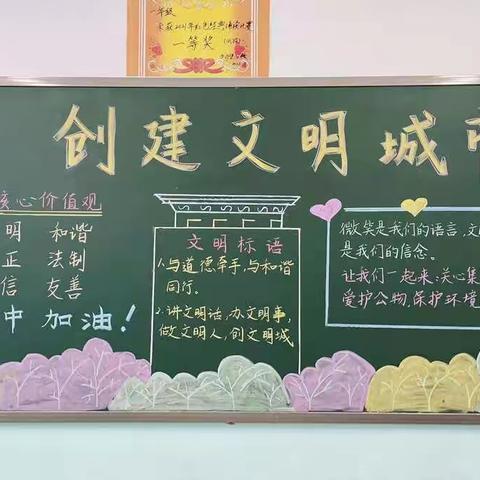 一年级
一等奖
创建文明城市
核心价值观
明 和谐
正 法制
信 友善
中 加油!
文明标语
1.与道德牵手,与和谐
同行。
2.讲文明话,办文明事,
做文明人,创文明城
微笑是我们的语言,文
是我们的信念。
让我们一起来,关心集
爱护公物,保护环境